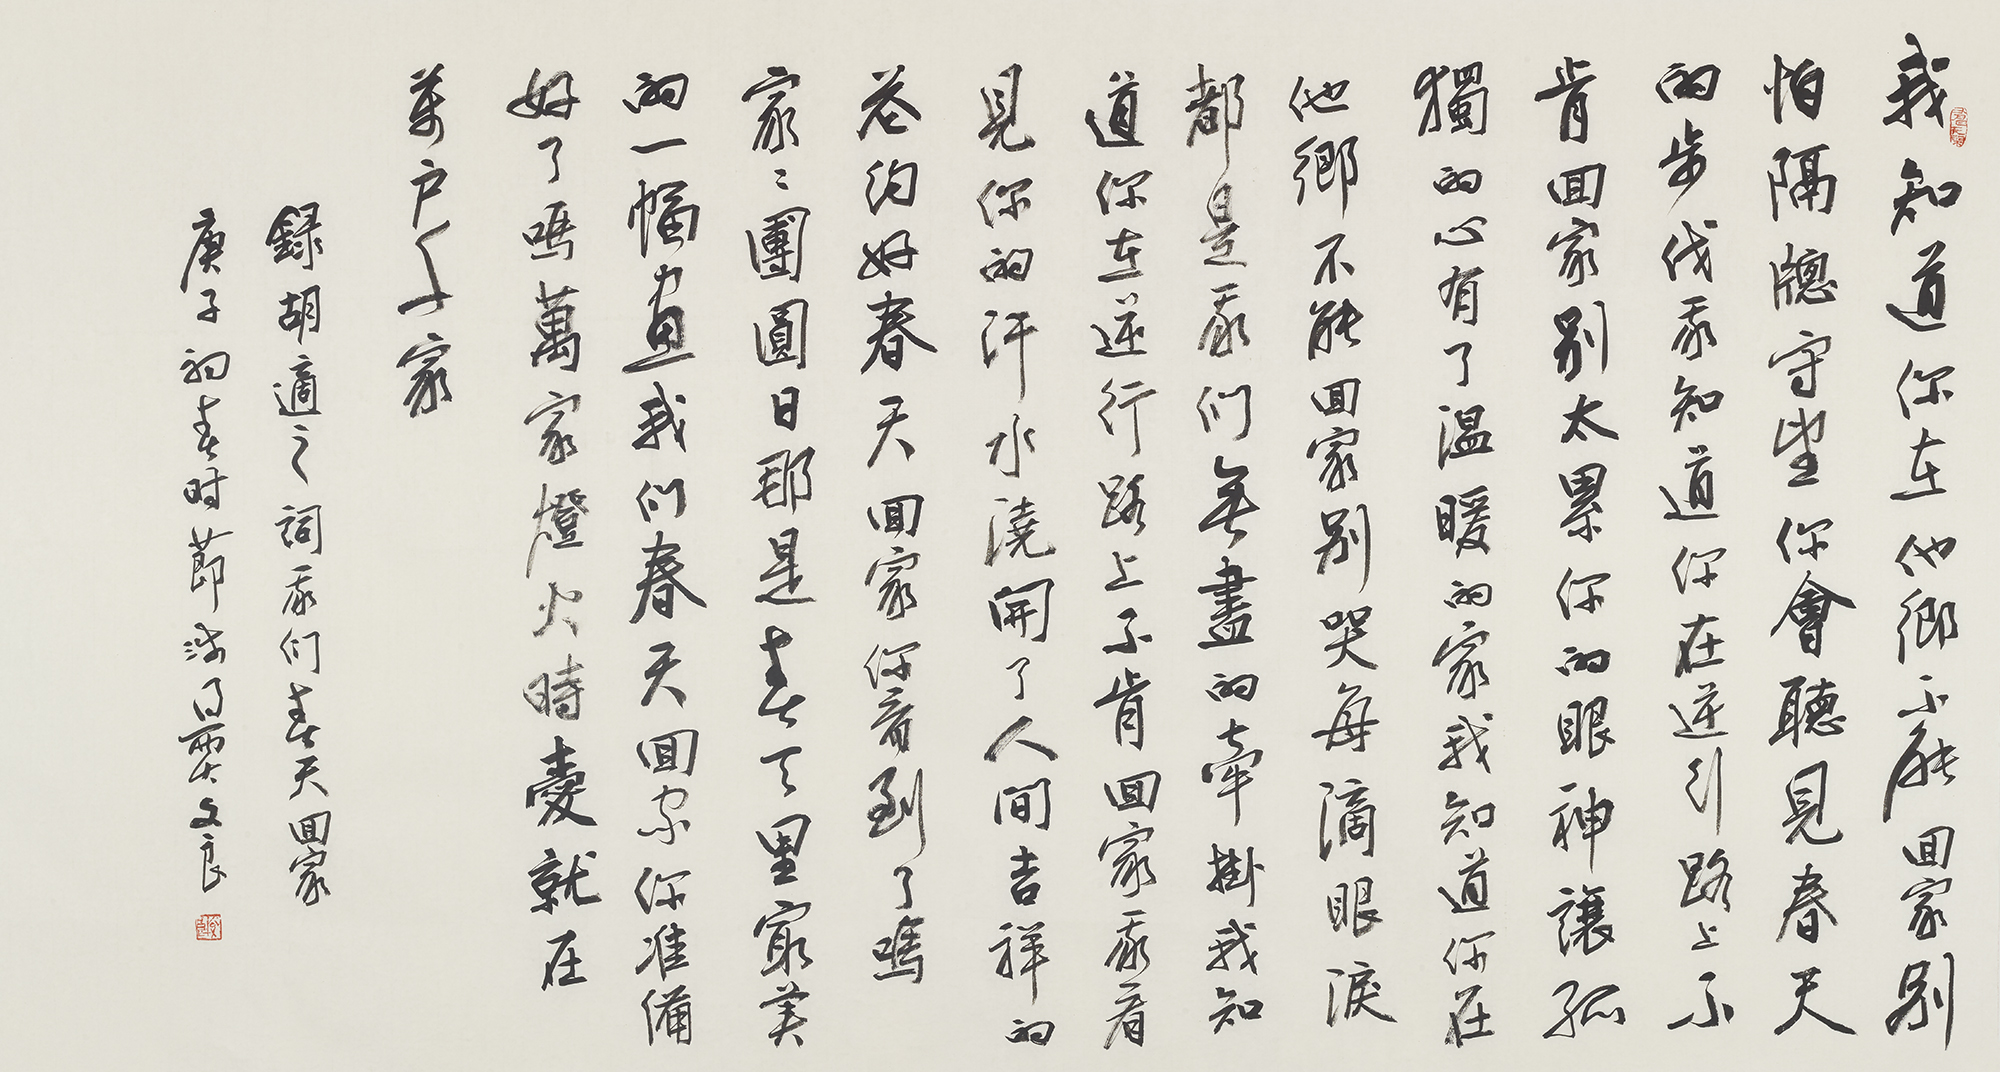 我知道你在他鄉不能回家别
怕隔牕守望你會聽見春天
的步伐我知道你在逆引路上不
肯回家别太累你的眼神讓孤
獨的心有了温暖的家我知道你在
他鄉不能回家别哭每滴眼淚
都是我们無盡的牽掛我知
道你在逆行路上不肯回家我看
見你的汗水澆開了人间吉祥的
花约好春天回家你看到了嗎
家〻團圓日那是春天里最美
的一幅畫我们春天回家你准備
好了嗎萬家燈火時愛就在
萬户千家
録胡適之詞我们春天回家
庚子初春时節 賈文良